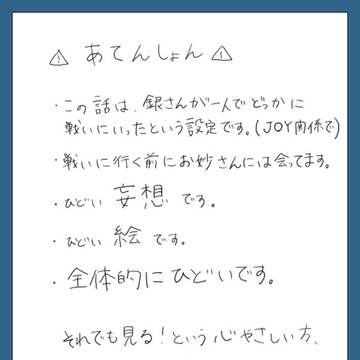 ⚠ あてんしょん ⚠
・この話は、銀さんが一人でどっかに
戦いにいったという設定です。(JOY関係で)
・戦いに行く前にお妙さんには会ってます。
・ひどい 妄想 です。
・ひどい 絵 です。
・全体的にひどいです。
それでも見る!という心やさしい方、